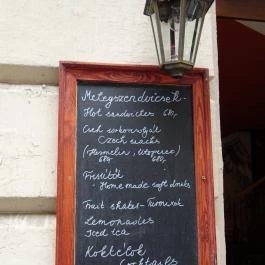 Melegszendvicsek-
Hot sandwiches 680,-
Cseh sorkorcsolyák
Czech snacks
(Hermelin, Utopenec)
680,- 680,-
Frissítők
Home made soft drinks
Fruit shakes-Turmixok
Lemonades
Iced tea
Koktélok
Cocktails